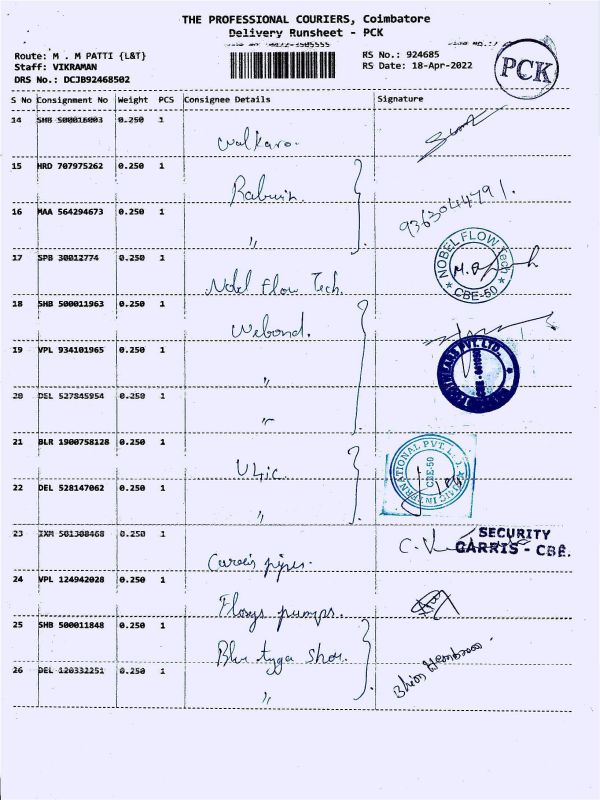 THE PROFESSIONAL COURIERS, Coimbatore
Delivery Runsheet - PCK
Route: M . M PATTI {L&T}
RS No.: 924685
Staff: VIKRAMAN
RS Date: 18-Apr-2022
DRS No.: DCJB92468502
PCK
S No Consignment No Weight PCS Consignee Details Signature
14 SHB 500016003 0.250 1
Walkaro.
15 HRD 707975262 0.250 1
16 MAA 564294673 0.250 1
〃
9363044791.
17 SPB 30012774 0.250 1
Nobel Flow Tech.
NOBEL FLOW Tech
CBE-50
18 SHB 500011963 0.250 1
Webond.
19 VPL 934101965 0.250 1
〃
20 DEL 527845954 0.250 1
〃
21 BLR 1900758128 0.250 1
INTERNATIONAL PVT. L
CBE-50
22 DEL 528147062 0.250 1
〃
23 IXM 501308468 0.250 1
SECURITY
CARRIS - CBE.
24 VPL 124942028 0.250 1
Flosys pumps.
25 SHB 500011848 0.250 1
Blue tyga Shoe.
26 DEL 120332251 0.250 1
〃